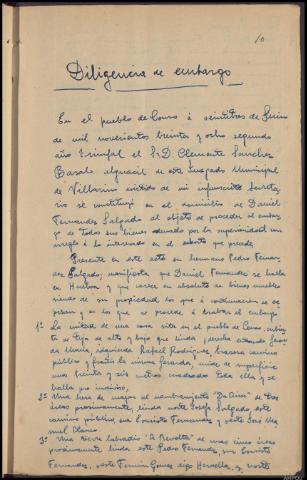 10
Diligencia de embargo
En el pueblo de Couso á veintitres de Junio
de mil novecientos treinta y ocho segundo
año triunfal el Sr D. Clemente Sanchez
Basalo alguacil de este Juzgado Municipal
de Villarino asistido de mi infrascrito Secreta-
rio se constituyó en el domicilio de Daniel
Fernandez Salgado al objeto de proceder al embar-
go de todos sus bienes ordenado por la superioridad con
arreglo á lo interesado en el que precede.
Presente en este acto su hermano Pedro Fernan-
dez Salgado, manifiesta que Daniel Fernandez se halla
en y que carece en absoluto de bienes muebles
siendo de su propiedad los que á continuación se ex-
presan y en los que se procede á trabar el embargo
1ª La mitad de una casa sita en el pueblo de Couso, cubier-
ta de teja de alto y bajo que linda, derecha entrando
Maria, izquierda Rafael Rodriguez, trasera camino
publico y frente la misma herencia, mide de superficie
unos treinta y seis metros cuadrados toda ella y se
halla pro indiviso,
2ª Una de al nombramiento "Da Aira" de tres
áreas proximamente, linda norte Josefa Salgado, este
camino publico, sur Evaristo Fernandez y oeste José Ma-
nuel Blanco.
3ª Una tierra labradio "A Revolta" de unas cinco áreas
proximamente linda este Pedro Fernandez, sur Evaristo
Fernandez, oeste Fermin Gomez sigo y norte